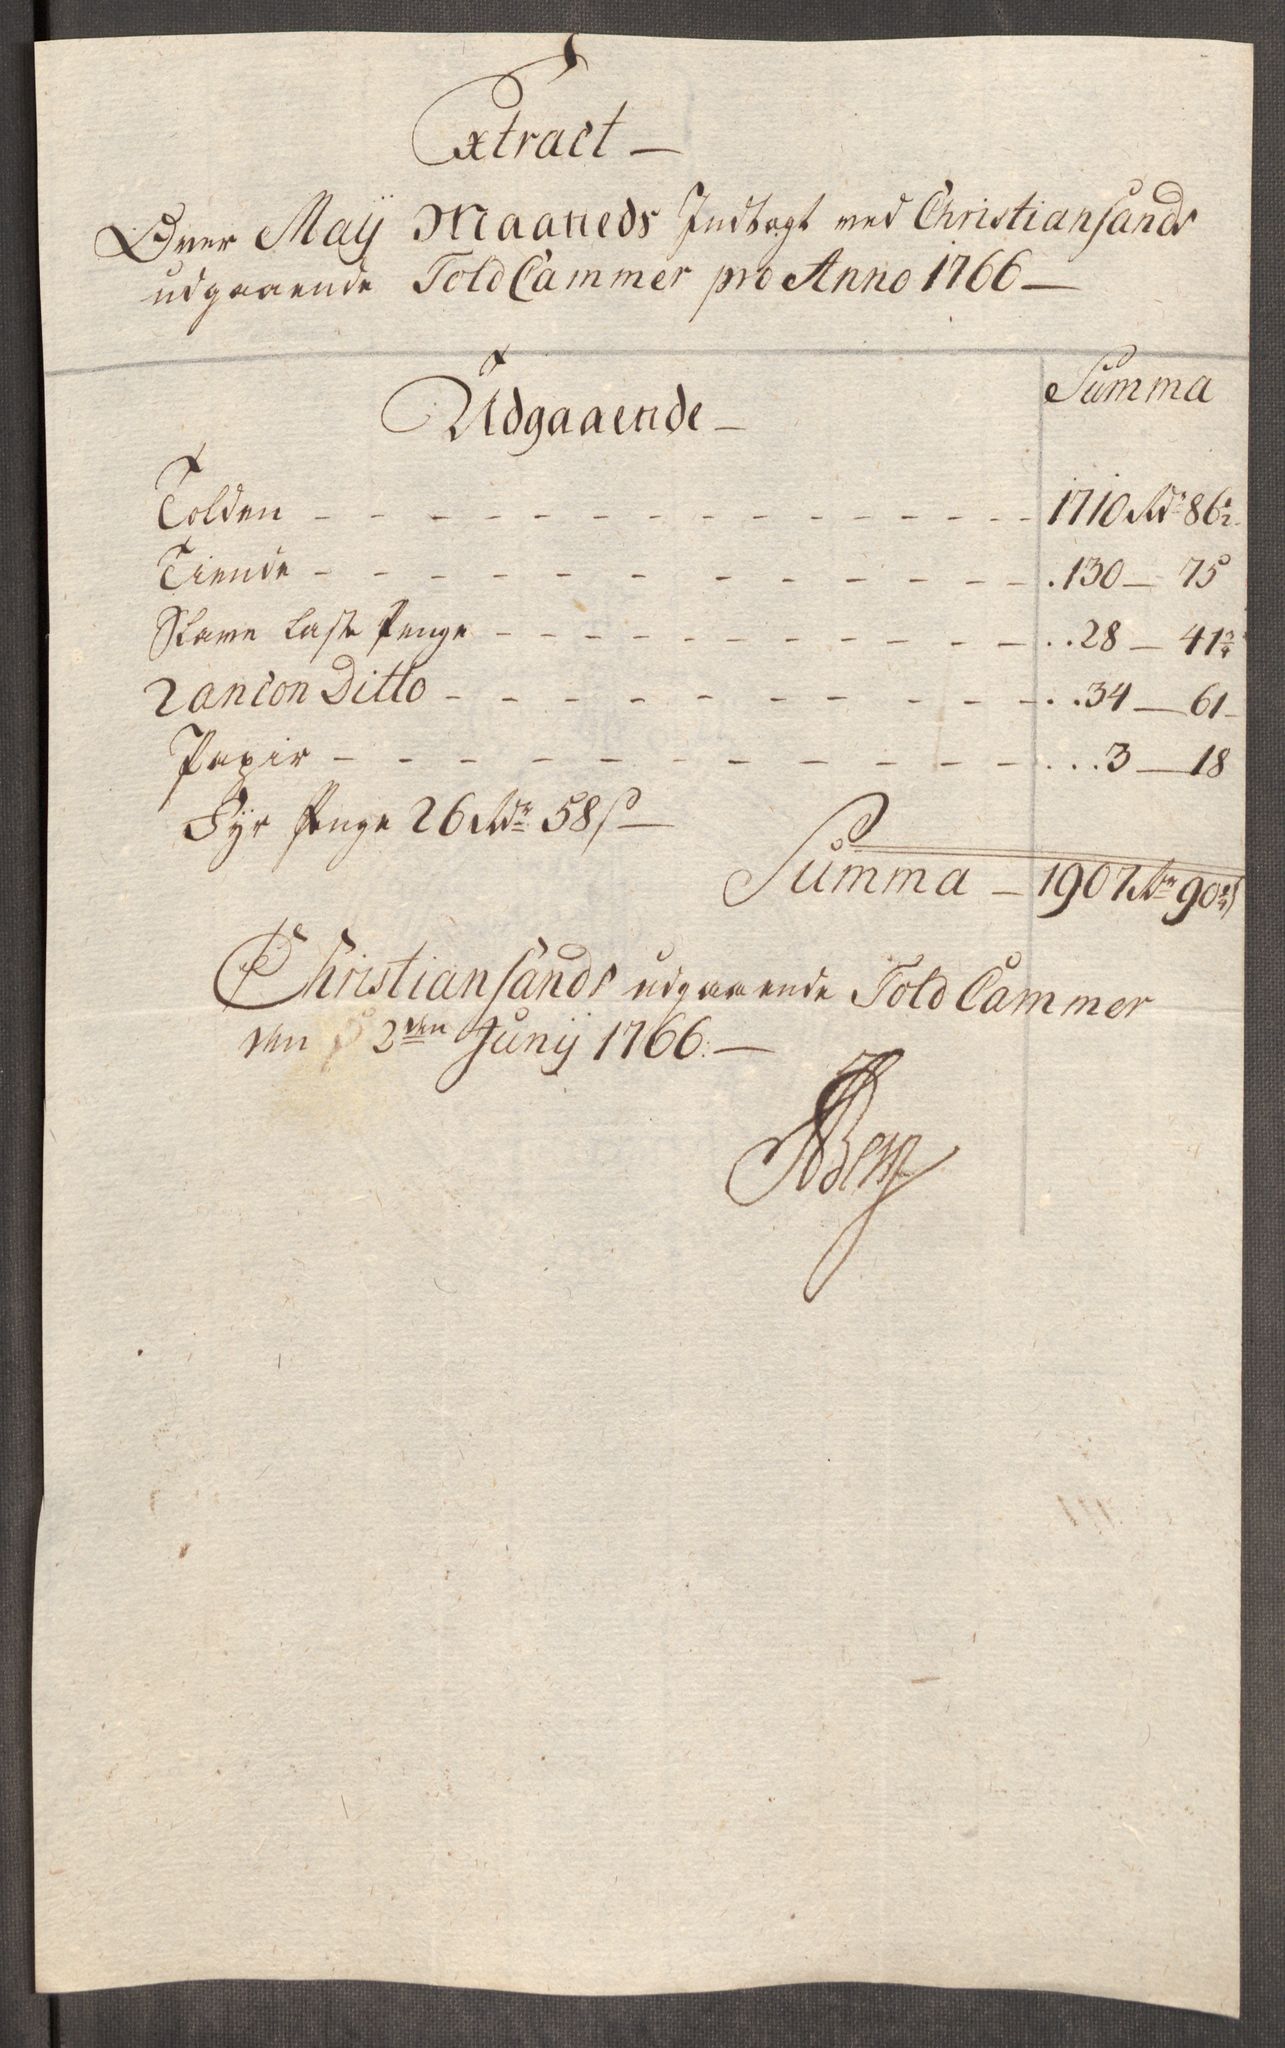 Extract —
Over Maÿ Maaneds Indtægt ved Christiansands
udgaaende Told Cammer pro Anno 1766 —
Summa
Udgaaende —
Tolden - - - - - - - - - - - - - - - - 1710 Rdr 86½
Tiende - - - - - - - - - - - - .130 — 75
Slave Laste Penge - - - - - - - - - - ..28 — 41¾
Rancon Ditto - - - - - - - - - ..34 — 61 -
Papir - - - - - - - - - - - ...3 — 18
Fÿr Penge 26 Rdr 58 ß —
Summa — 1907 Rdr 90¼ ß
Christiansands udgaaende Told Cammer
den 2den Junÿ 1766. —